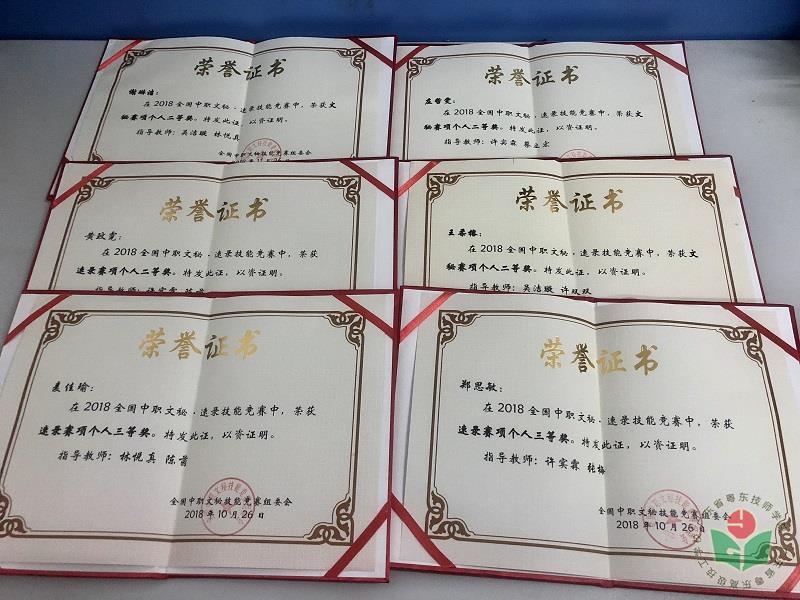 荣誉证书
谢琳洁：
在2018全国中职文秘．速录技能竞赛中，荣获文
秘赛项个人二等奖。特发此证，以资证明。
指导教师：吴洁璇 林悦真
全国中职文秘技能竞赛组委会
荣誉证书
庄哲雯：
在2018全国中职文秘．速录技能竞赛中，荣获文
秘赛项个人二等奖。特发此证，以资证明。
指导教师：许实霖 蔡立宏
荣誉证书
黄政霓：
在2018全国中职文秘．速录技能竞赛中，荣获
速录赛项个人二等奖。特发此证，以资证明。
指导教师：许实霖 陈蕾
荣誉证书
王柔榕：
在2018全国中职文秘．速录技能竞赛中，荣获文
秘赛项个人二等奖。特发此证，以资证明。
指导教师：吴洁璇 许双双
荣誉证书
麦佳瑜：
在2018全国中职文秘．速录技能竞赛中，荣获
速录赛项个人三等奖。特发此证，以资证明。
指导教师：林悦真 陈蕾
全国中职文秘技能竞赛组委会
2018年10月26日
荣誉证书
郑思敏：
在2018全国中职文秘．速录技能竞赛中，荣获
速录赛项个人三等奖。特发此证，以资证明。
指导教师：许实霖 张梅
全国中职文秘技能竞赛组委会
2018年10月26日